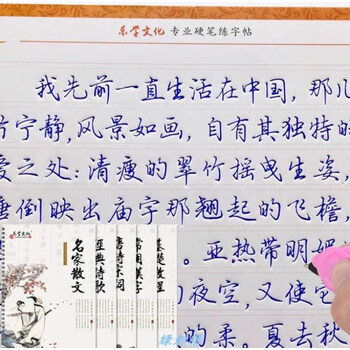 乐学文化 专业硬笔练字帖
我先前一直生活在中国，那儿
竹宁静，风景如画，自有其独特的
爱之处：清瘦的翠竹摇曳生姿，
垂倒映出庙宇那翘起的飞檐，
。亚热带明媚
夜空，又使它
的柔。夏去秋
乐学文化
名家散文
经典诗歌
唐诗宋词
常用汉字
基础教程